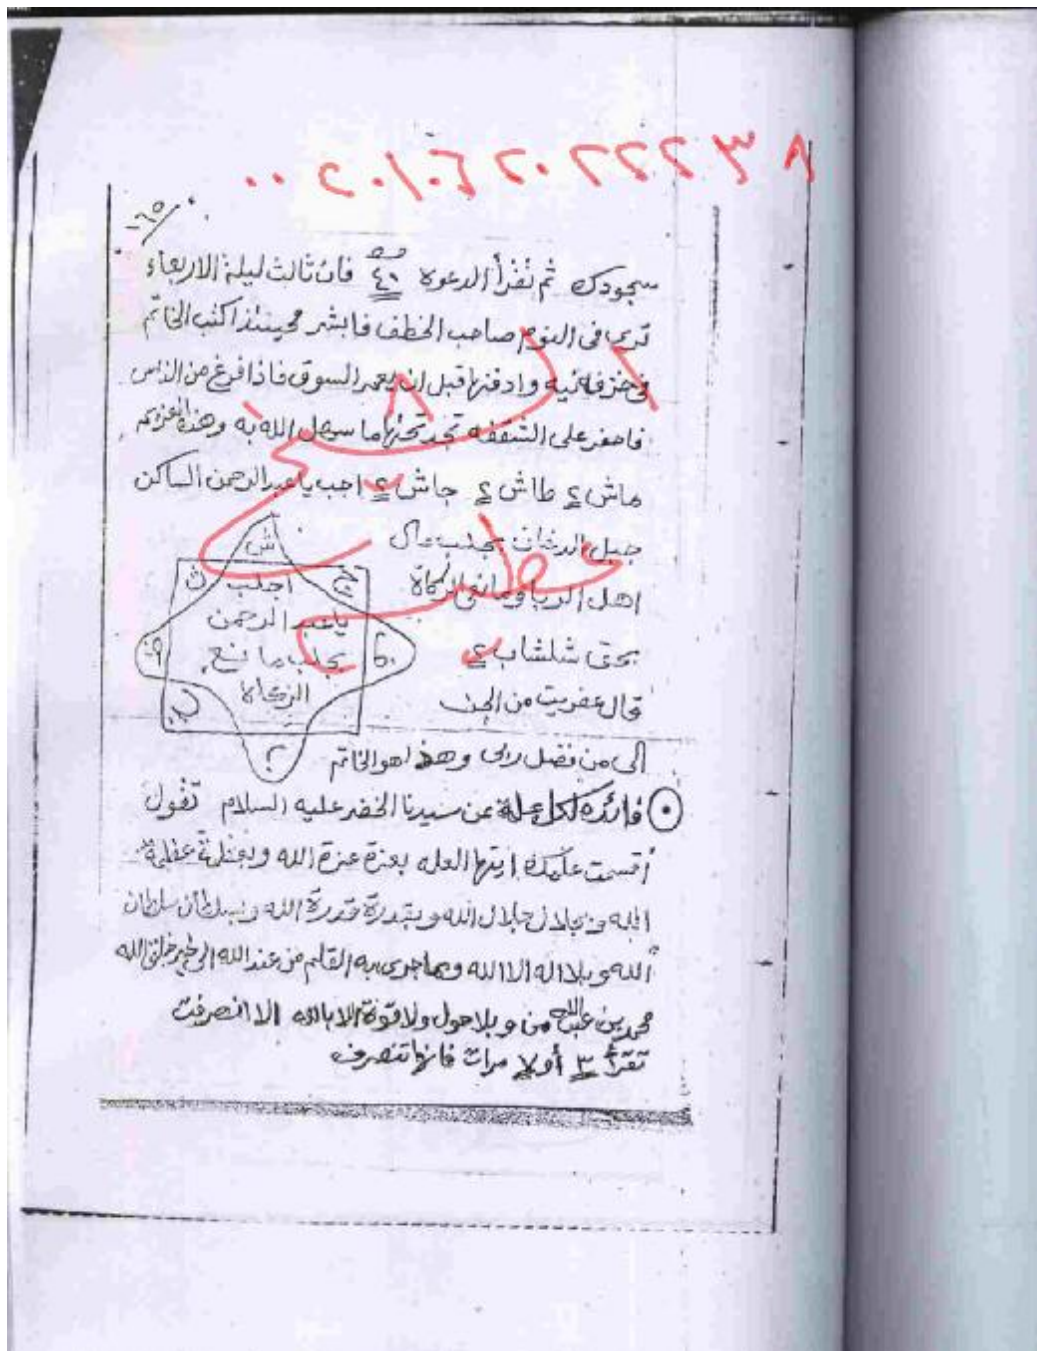 ٠٠٢٠١٠٤٢٠٢٢٢٢٣٨
١٦٥
سجودك ثم تقرأ الدعوة ٤١ مرة فان ثالث ليلة الاربعاء
ترى فى النوم صاحب الخطف فابشر فحينئذ اكتب الخاتم
وادفنها قبل ان يعمر السوق فاذا فرغ من الناس
فاحفر على الشقفه تجد تحتها ما سهل الله به وهذه العزيمه
هاش ٢ طاش ٢ جاش ٢ اجب يا عبد الرحمن الساكن
جبل الدخان بجلب مال
اهل الربا ومانعى الزكاة
بحق شلشاب ٢
قال عفريت من الجن
الى من فضل ربى وهذا هو الخاتم
ش
ث
اجلب
يا عبد الرحمن
بجلب مانع
الزكاة
فائدة لكل علة عن سيدنا الخضر عليه السلام تقول
أقسمت عليك ايتها العله بعزة عزة الله وبعظمة عظمة
الله وبجلال جلال الله وبقدرة قدرة الله وبسلطان سلطان
الله وبلا اله الا الله وبما جرى به القلم من عند الله الى خير خلق الله
محمد بن عبد الله وبلا حول ولا قوة الا بالله الا انصرفت
تقرأ ٣ أو ٧ مرات فانها تنصرف